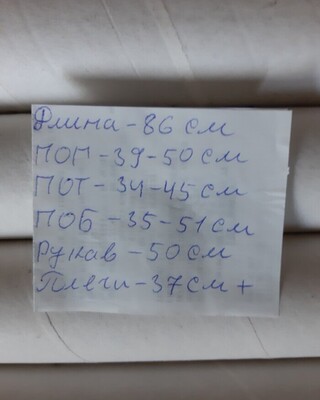 Длина - 86 см
ПОГ - 39 - 50 см
ПОТ - 34 - 45 см
ПОБ - 35 - 51 см
Рукав - 50 см
Плечи - 37 см +